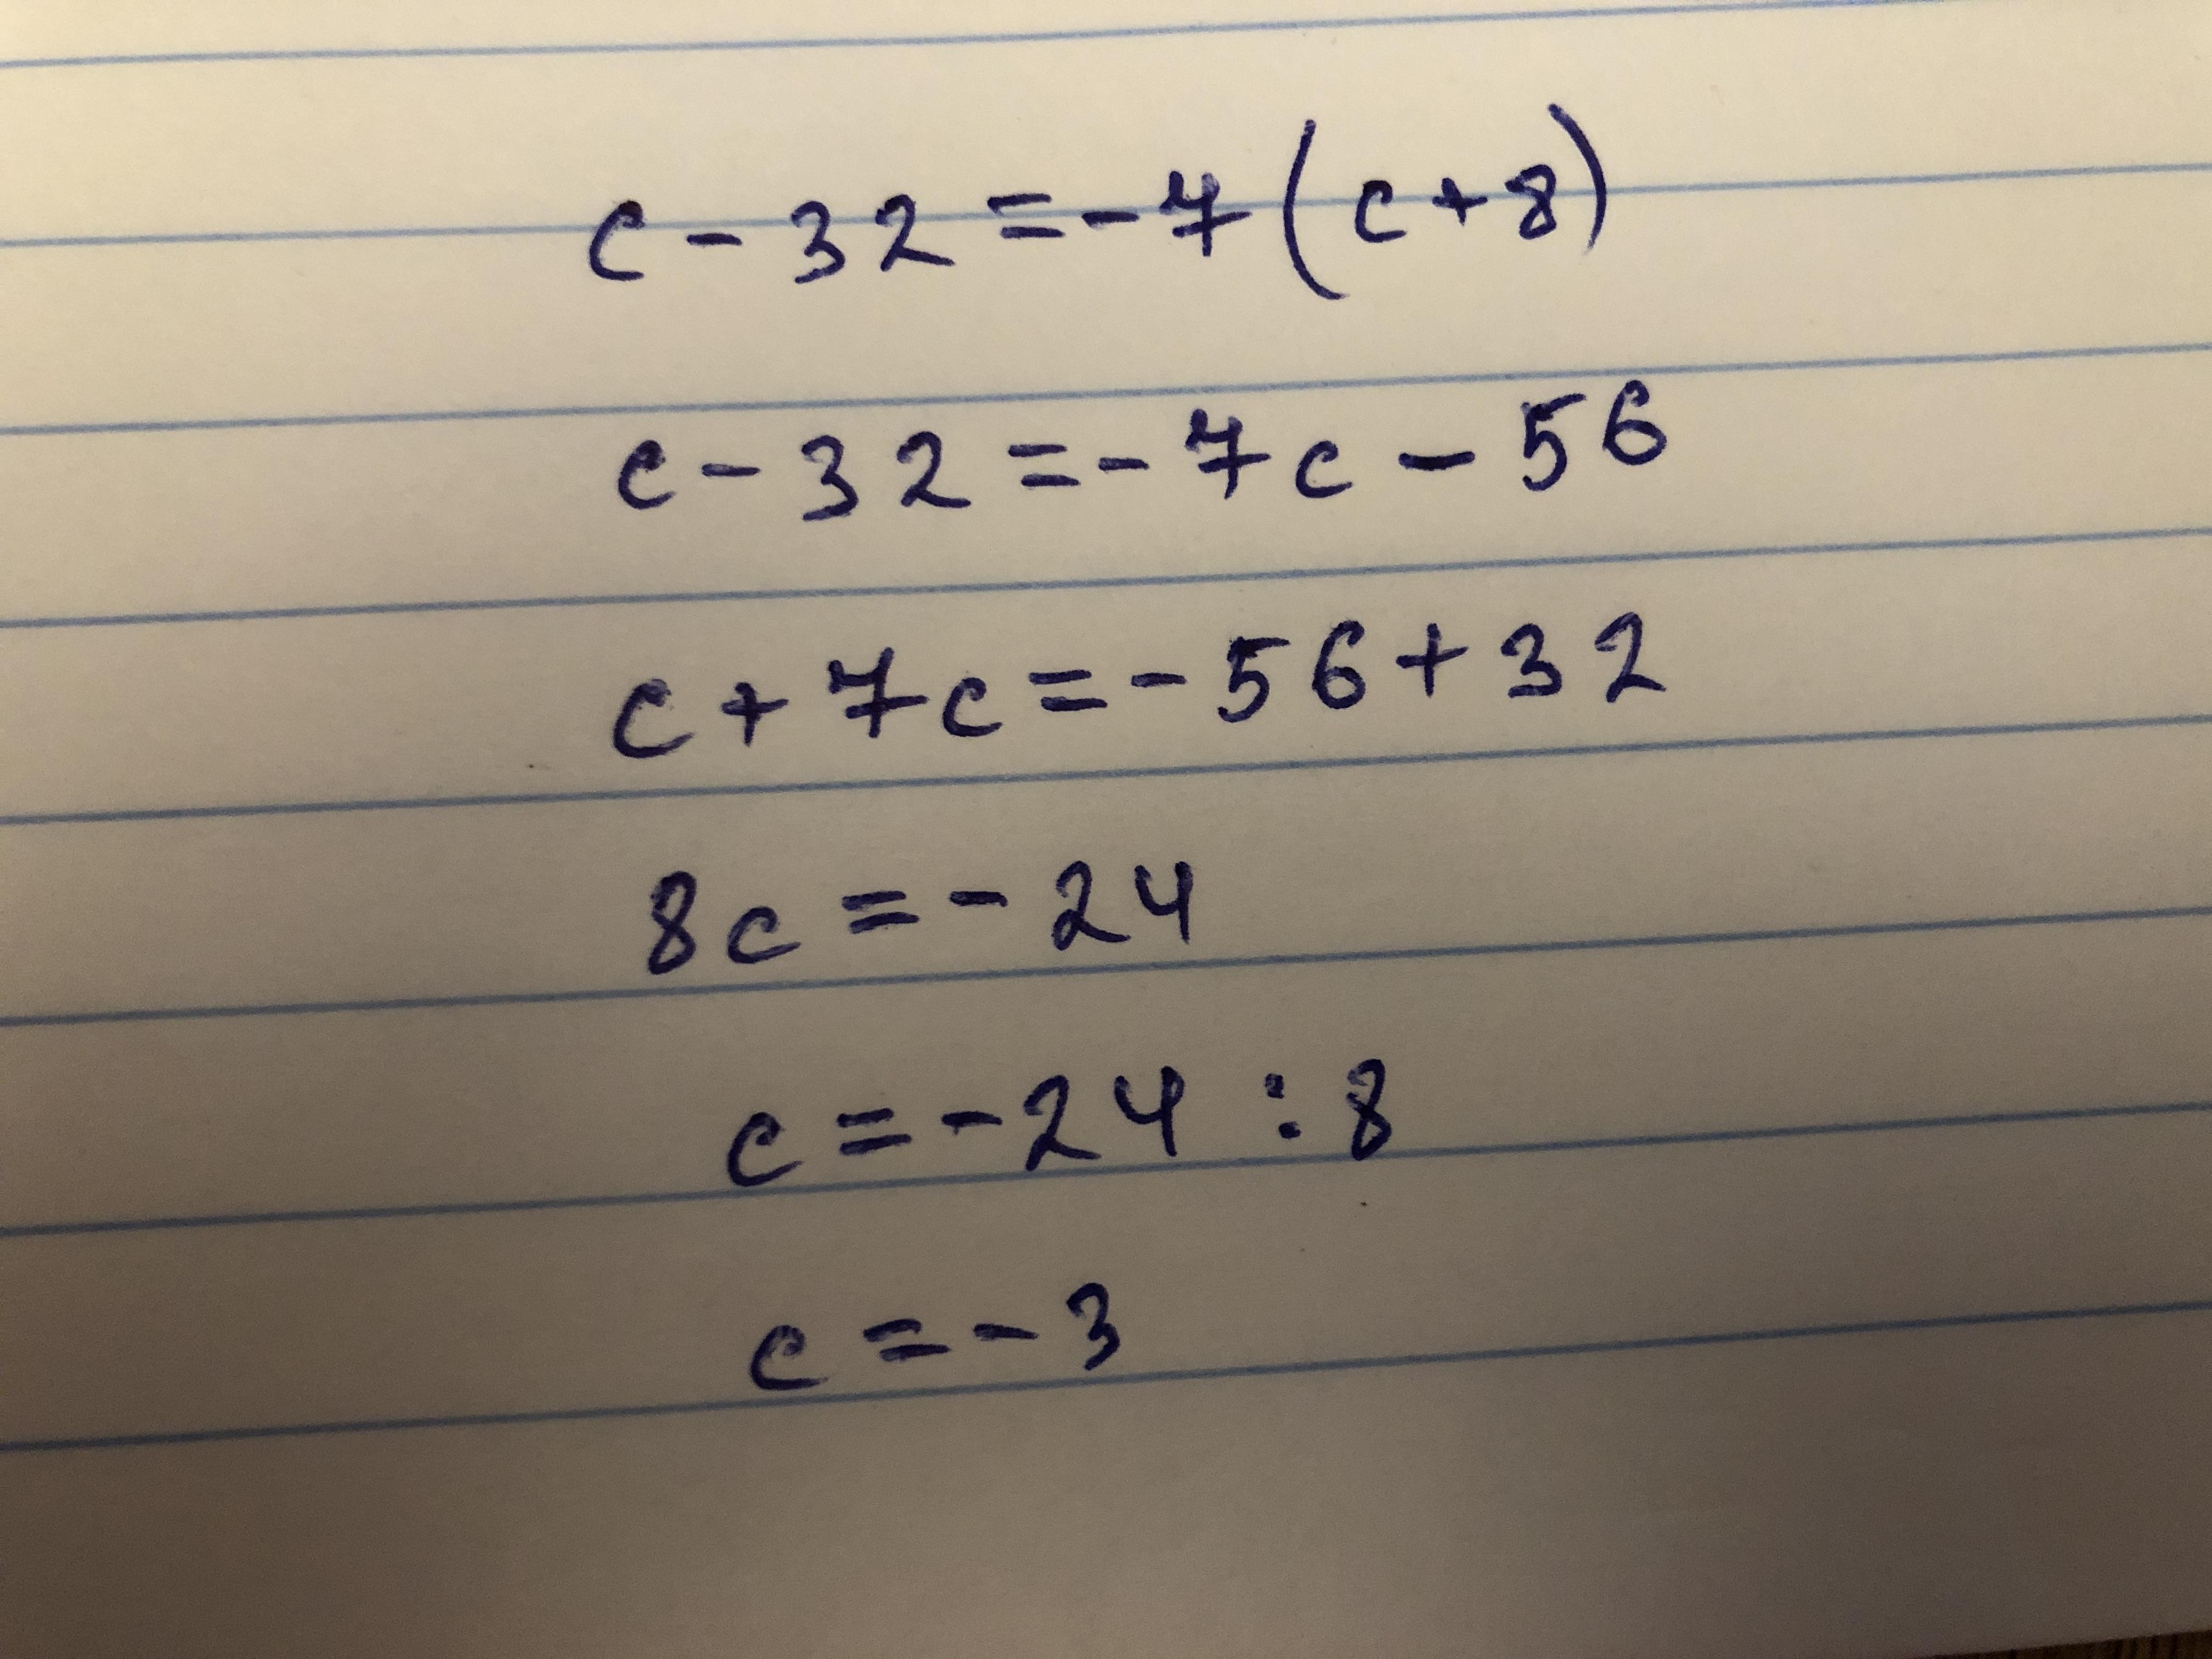 c - 32 = -7 (c + 8)
c - 32 = -7c - 56
c + 7c = -56 + 32
8c = -24
c = -24 : 8
c = -3